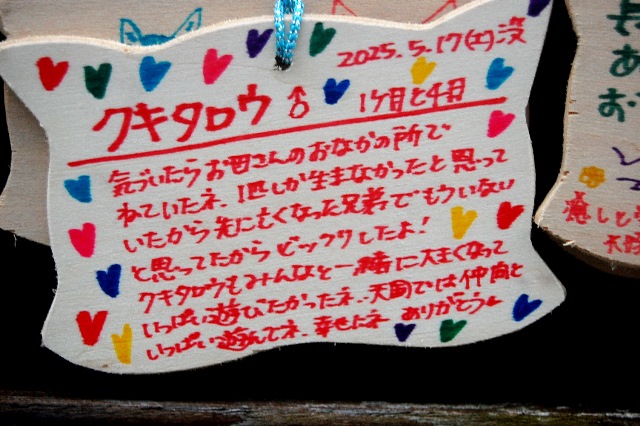 2025.5.17(土)没
クキタロウ♂ 1ケ月と4日
気づいたらお母さんのおなかの所で
ねていたネ、1匹しか生まなかったと思って
いたから先に亡くなった兄弟でもういない
と思ってたからビックリしたよ!
クキタロウもみんなと一緒に大きくなって
いっぱい遊びたかったネ、天国では仲間と
いっぱい遊んでネ、幸せにネ ありがとう
あ
お
癒し
天国